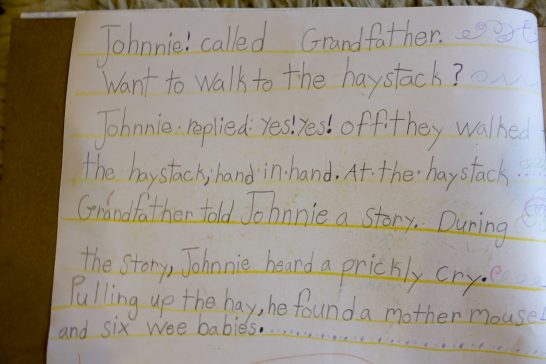 Johnnie! called Grandfather.
Want to walk to the haystack?
Johnnie replied: Yes! Yes! off they walked
the haystack, hand in hand. At the haystack
Grandfather told Johnnie a story. During
the story, Johnnie heard a prickly cry.
Pulling up the hay, he found a mother mouse
and six wee babies.